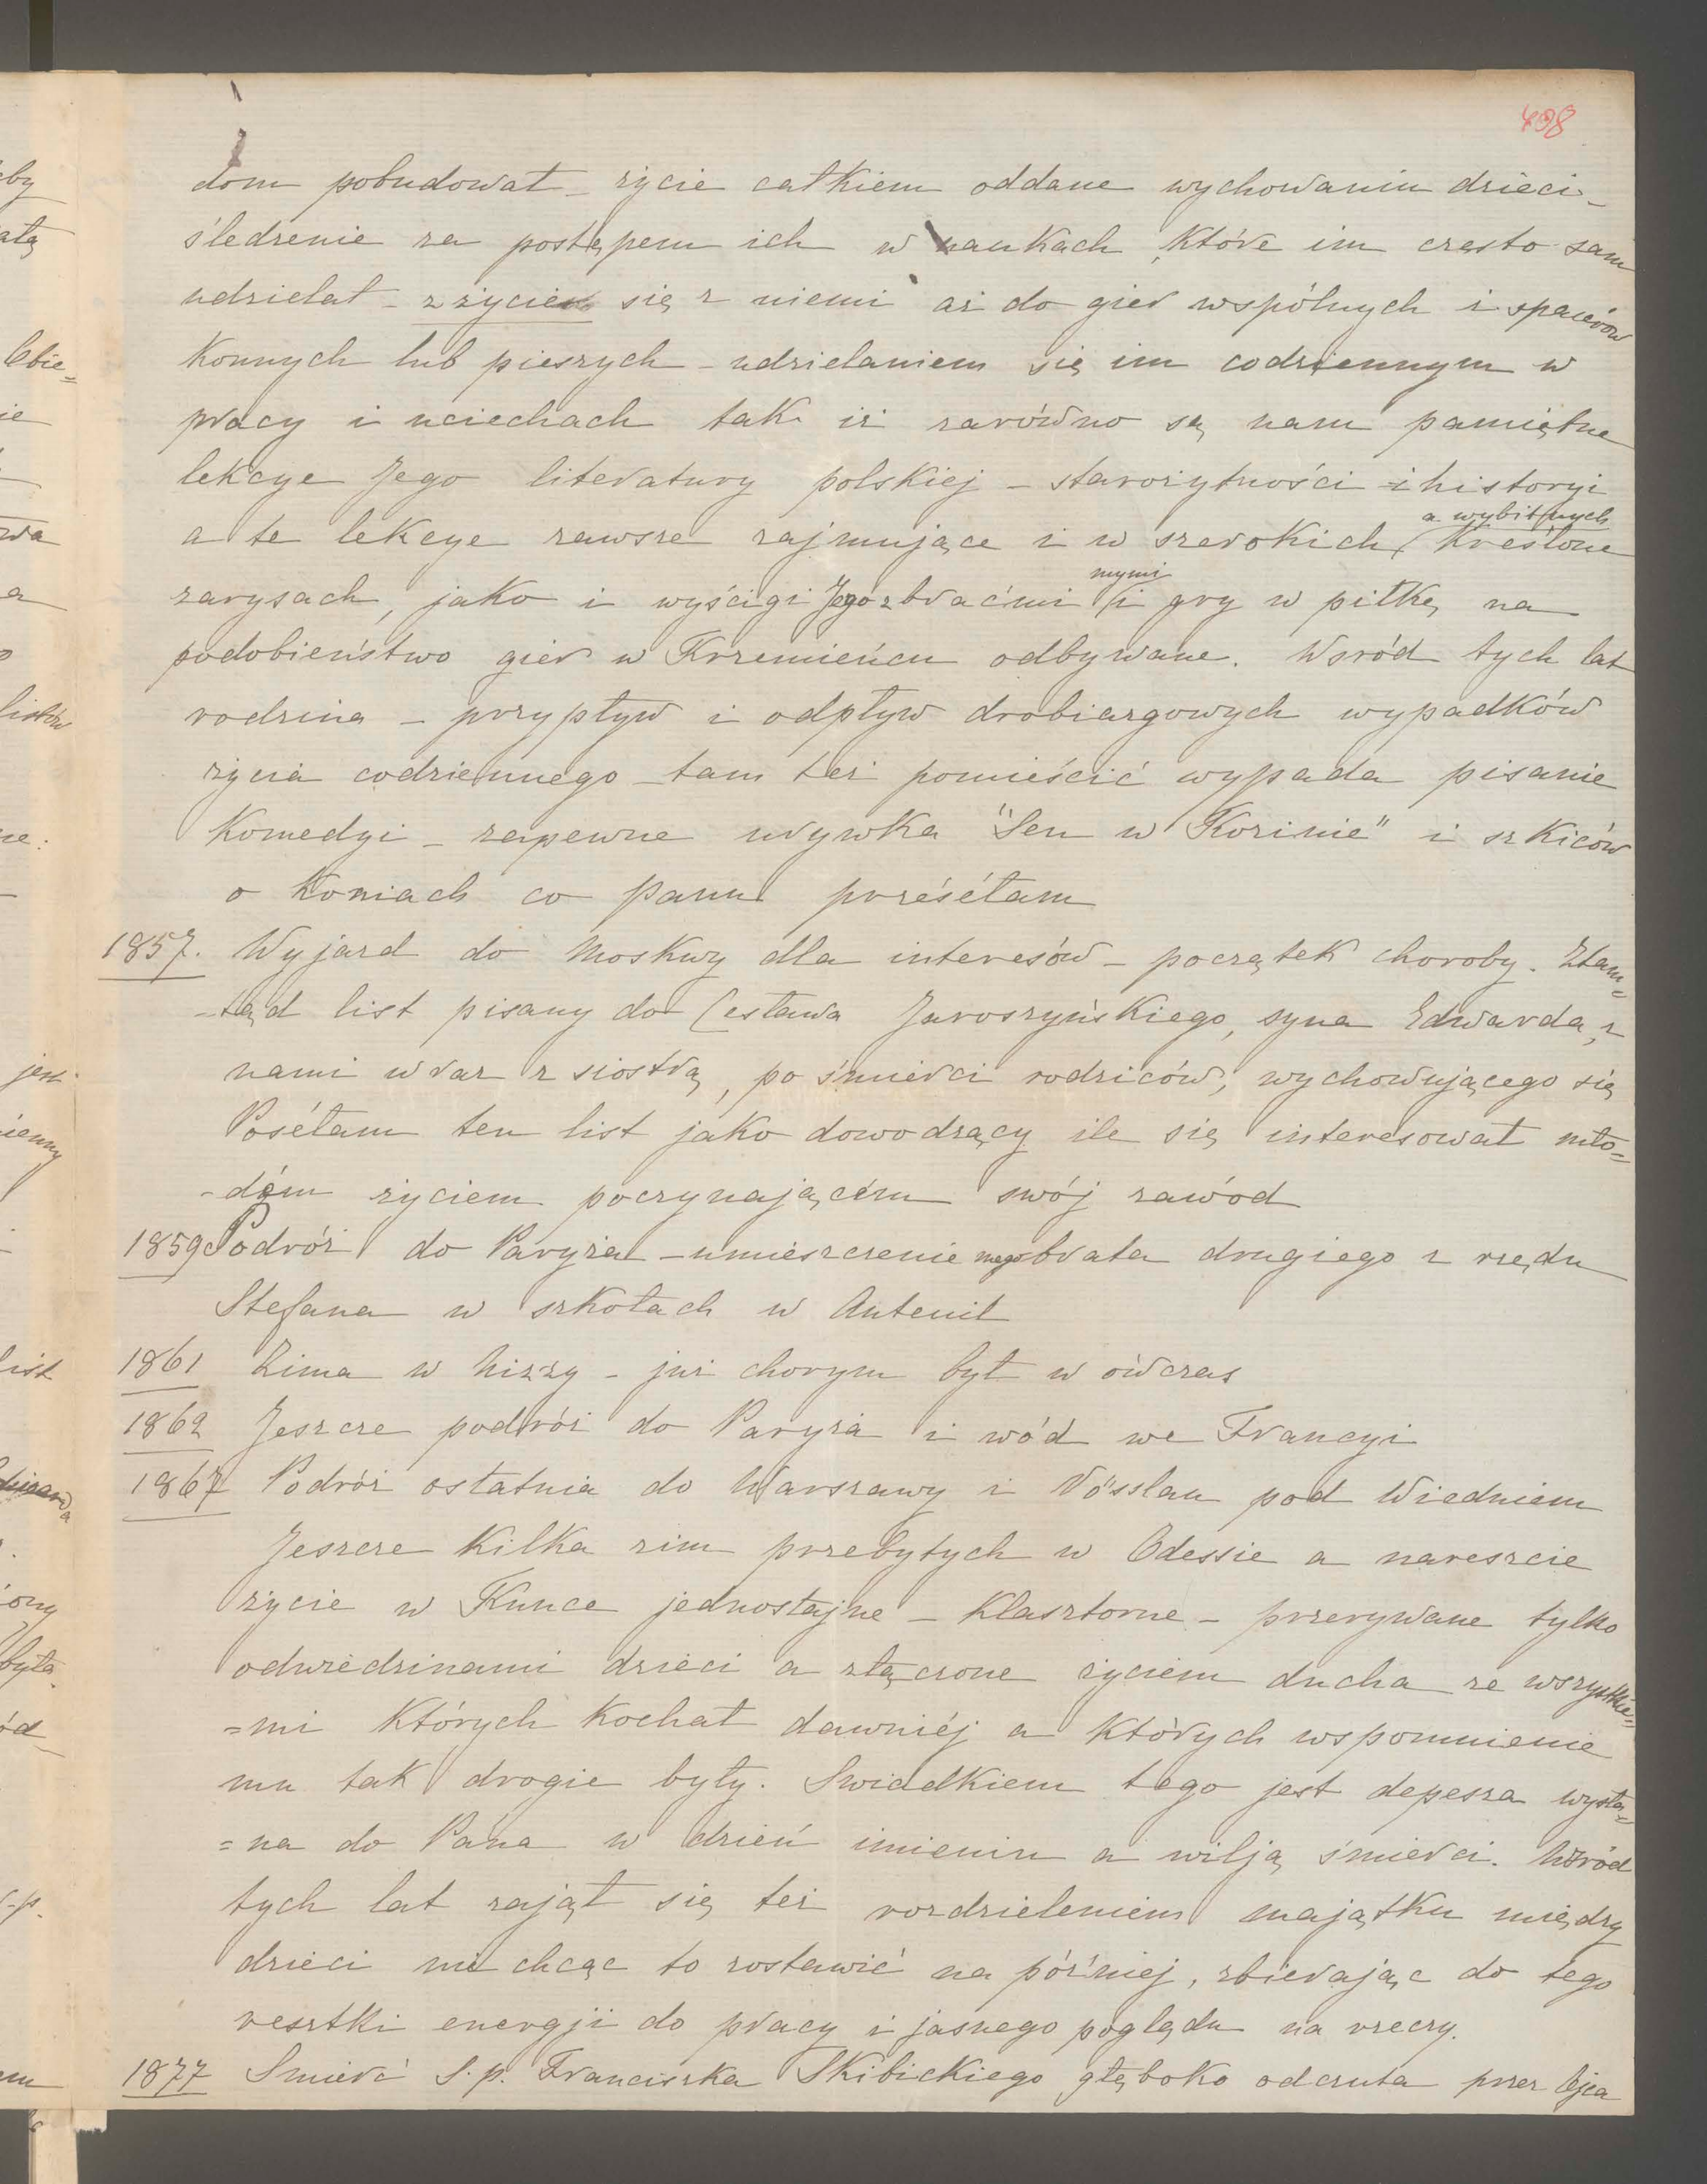 498
dom pobudował – życie całkiem oddane wychowaniu dzieci –
śledzenie za postępem ich w naukach, które im często sam
udzielał – zżycie się z niemi aż do gier wspólnych i spacerów
konnych lub pieszych – udzielaniem się im codziennym w
pracy i uciechach tak iż zarówno są nam pamiętne
lekcye Jego literatury polskiej – starożytności i historyi
a wybitnych
a te lekcye zawsze zajmujące i w szerokich kreślone
mymi
zarysach, jako i wyścigi Jego z braćmi i gry w piłkę na
podobieństwo gier w Krzemieńcu odbywane. Wsród tych lat
rodzina – przypływ i odpływ drobiazgowych wypadków
życia codziennego – tam też pomieścić wypada pisanie
Komedyi – zapewne urywka "Sen w Kozinie" i szkiców
o Koniach co panu prześéłam
1857. Wyjazd do Moskwy dla interesów – początek choroby. Ztam=
-tąd list pisany do Cesława Jaroszyńskiego, syna Edwarda, z
nami wraz z siostrą, po śmierci rodziców, wychowującego się
Poséłam ten list jako dowodzący ile się interesował mło=
-dém życiem poczynającém swój zawód
1859 Podróż do Paryża – umieszczenie mego brata drugiego z rzędu
Stefana w szkołach w Auteuil
1861 Zima w Nizzy – już chorym był w ówczas
1862 Jeszcze podróż do Paryża i wód we Francyi
1867 Podróż ostatnia do Warszawy i Vösslau pod Wiedniem
Jeszcze kilka zim przebytych w Odessie a nareszcie
życie w Kunce jednostajne – klasztorne – przerywane tylko
odwiedzinami dzieci a złączone życiem ducha ze wszystkie=
=mi których kochał dawniéj a których wspomnienie
mu tak drogie były. Swiadkiem tego jest depesza wysła=
=na do Pana w dzień imienin a wilją śmierci. Wsród
tych lat zajął się też rozdzieleniem majątku między
dzieci nie chcąc to zostawić na późniéj, zbierając do tego
resztki energji do pracy i jasnego poglądu na rzeczy.
1877 Smierć S.p. Franciszka Skibickiego głęboko odczuta przez Ojca